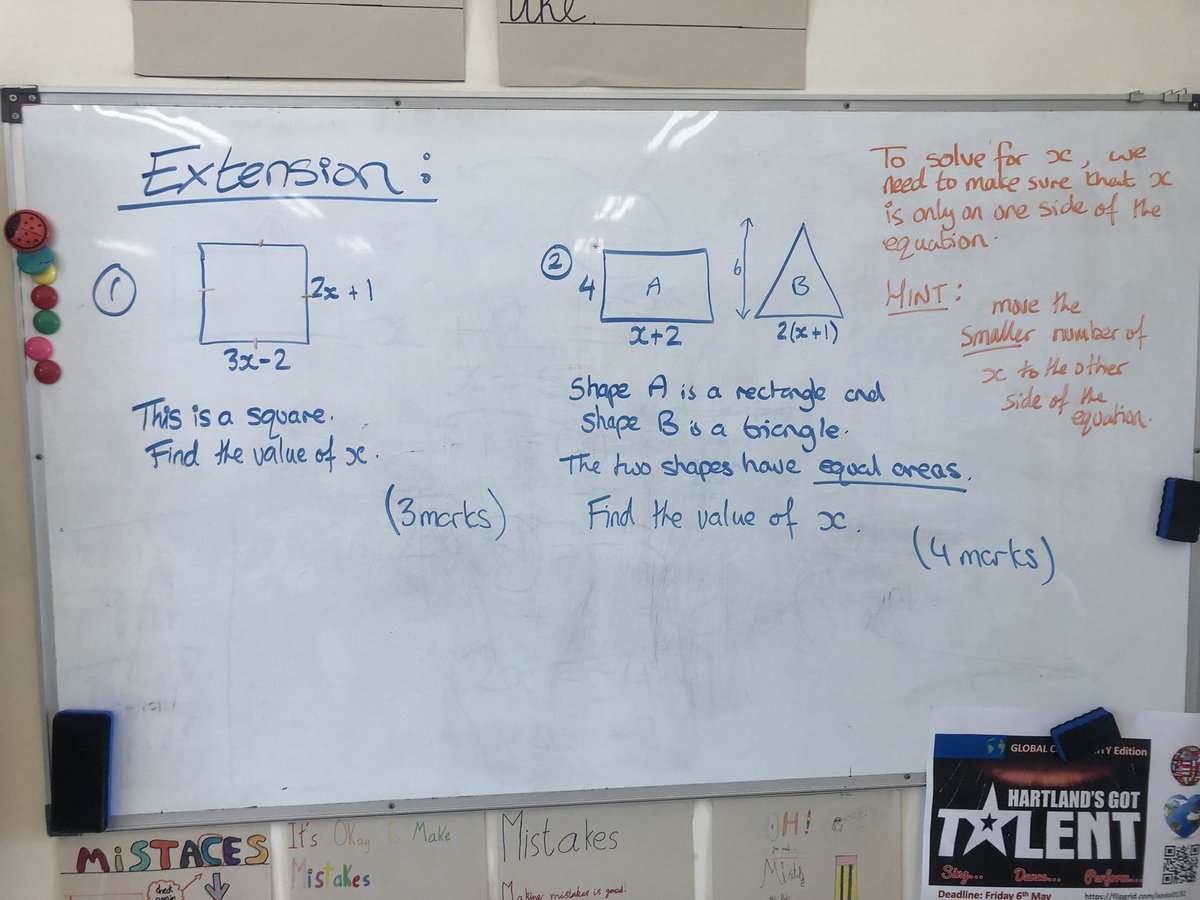 like.
Extension:
To solve for x, we
need to make sure that x
is only on one side of the
equation.
HINT: move the
smaller number of
x to the other
side of the
equation.
①
2x + 1
3x - 2
This is a square.
Find the value of x.
(3 marks)
②
4
A
x+2
6
B
2(x+1)
Shape A is a rectangle and
shape B is a triangle.
The two shapes have equal areas.
Find the value of x.
(4 marks)
MiSTACES
check
again
It's Okay To Make
Mistakes
Mistakes
Making mistakes is good!
OH!
GLOBAL Edition
HARTLAND'S GOT
TALENT
Sing... Dance... Perform...
Deadline: Friday 6th May